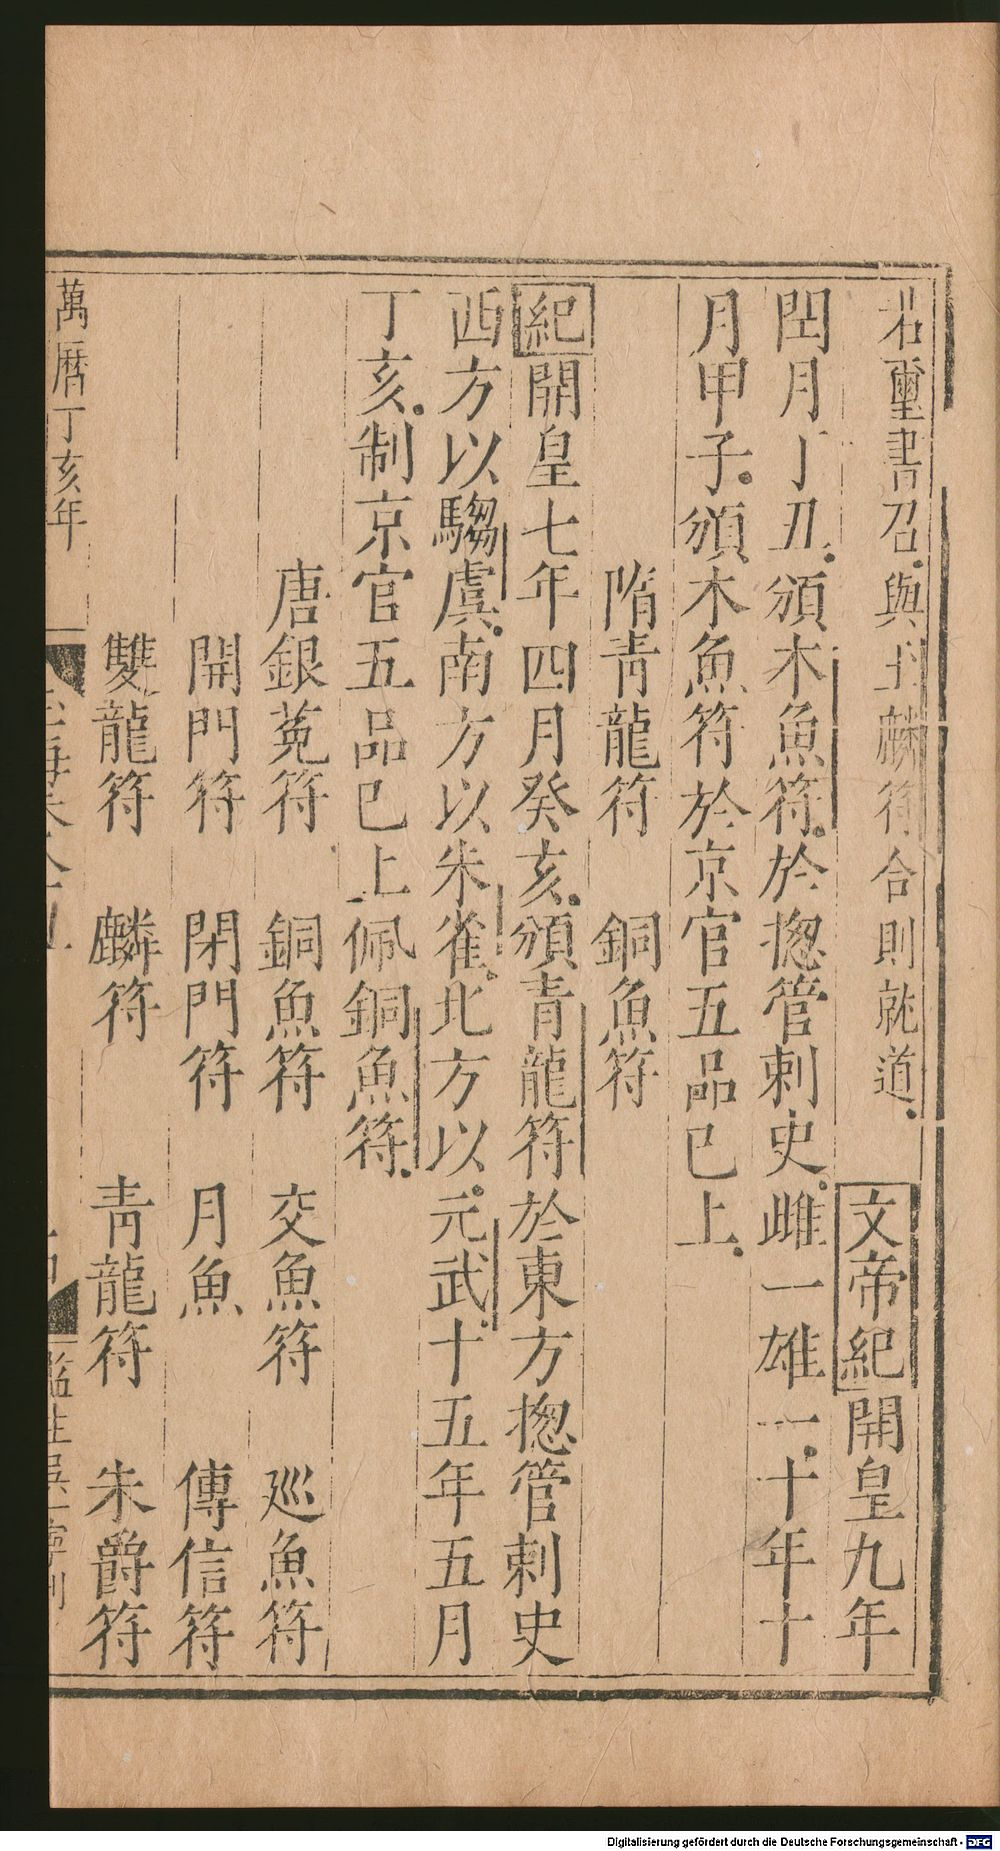 若璽書召與玉麟符合則就道文帝紀開皇九年
閏月丁丑頒木魚符於揔管刺史雌一雄一十年十
月甲子頒木魚符於京官五品已上
隋青龍符　銅魚符
紀開皇七年四月癸亥頒青龍符於東方揔管刺史
西方以騶虞南方以朱雀北方以元武十五年五月
丁亥制京官五品已上佩銅魚符
唐銀菟符　銅魚符　交魚符　巡魚符
開門符　閉門符　月魚　傳信符
雙龍符　麟符　青龍符　朱爵符
萬曆丁亥年
監生吳
Digitalisierung gefördert durch die Deutsche Forschungsgemeinschaft - DFG